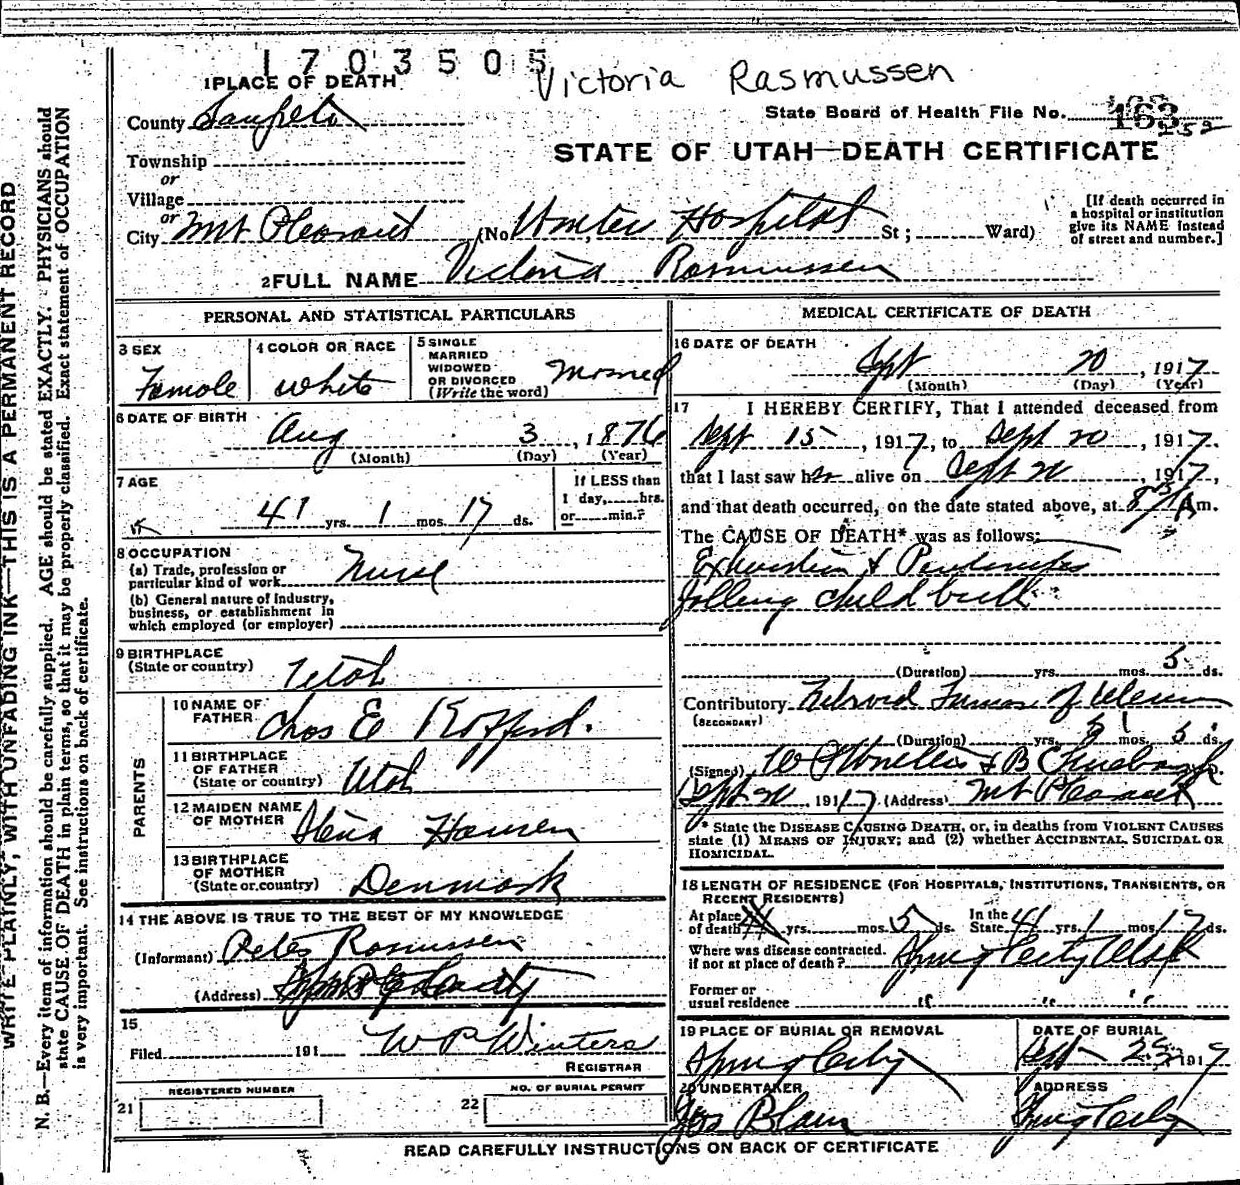 1703505
Victoria Rasmussen
1 PLACE OF DEATH
State Board of Health File No. 163
252
County Sanpete
STATE OF UTAH—DEATH CERTIFICATE
Township
or
Village
or
City Mt Pleasant (No. Hospital St; Ward)
[If death occurred in
a hospital or institution
give its NAME instead
of street and number.]
2 FULL NAME Victoria Rasmussen
PERSONAL AND STATISTICAL PARTICULARS
3 SEX Female
4 COLOR OR RACE white
5 SINGLE
MARRIED
WIDOWED
OR DIVORCED
(Write the word) Married
6 DATE OF BIRTH
Aug 3, 1876
(Month) (Day) (Year)
7 AGE
41 yrs. 1 mos. 17 ds.
If LESS than
1 day, hrs.
or min.?
8 OCCUPATION
(a) Trade, profession or
particular kind of work Nurse
(b) General nature of industry,
business, or establishment in
which employed (or employer)
9 BIRTHPLACE
(State or country) Utah
PARENTS
10 NAME OF
FATHER Chas E Kofford.
11 BIRTHPLACE
OF FATHER
(State or country) Utah
12 MAIDEN NAME
OF MOTHER Hansen
13 BIRTHPLACE
OF MOTHER
(State or country) Denmark
14 THE ABOVE IS TRUE TO THE BEST OF MY KNOWLEDGE
(Informant) Peter Rasmussen
(Address)
15
Filed 191 W P Winters
REGISTRAR
REGISTERED NUMBER
21
NO. OF BURIAL PERMIT
22
MEDICAL CERTIFICATE OF DEATH
16 DATE OF DEATH
Sept 20, 1917
(Month) (Day) (Year)
17 I HEREBY CERTIFY, That I attended deceased from
Sept 15, 1917, to Sept 20, 1917.
that I last saw her alive on Sept 20, 1917,
and that death occurred, on the date stated above, at 8 Am.
The CAUSE OF DEATH* was as follows:
Exhaustion &
child birth
(Duration) yrs. mos. 5 ds.
Contributory of
(SECONDARY)
(Duration) yrs. mos. 5 ds.
(Signed)
Sept 20, 1917 (Address) Mt Pleasant
* State the DISEASE CAUSING DEATH, or, in deaths from VIOLENT CAUSES
state (1) MEANS OF INJURY; and (2) whether ACCIDENTAL, SUICIDAL OR
HOMICIDAL.
18 LENGTH OF RESIDENCE (FOR HOSPITALS, INSTITUTIONS, TRANSIENTS, OR
RECENT RESIDENTS)
At place
of death yrs. mos. 5 ds.
In the
State 41 yrs. 1 mos. 17 ds.
Where was disease contracted.
if not at place of death? Spring City Utah
Former or
usual residence " " "
19 PLACE OF BURIAL OR REMOVAL
Spring City
DATE OF BURIAL
Sept 1917
20 UNDERTAKER
Jos Blain
ADDRESS
Spring City
READ CAREFULLY INSTRUCTIONS ON BACK OF CERTIFICATE
WRITE PLAINLY, WITH UNFADING INK—THIS IS A PERMANENT RECORD
N. B.—Every item of information should be carefully supplied. AGE should be stated EXACTLY. PHYSICIANS should
state CAUSE OF DEATH in plain terms, so that it may be properly classified. Exact statement of OCCUPATION
is very important. See instructions on back of certificate.